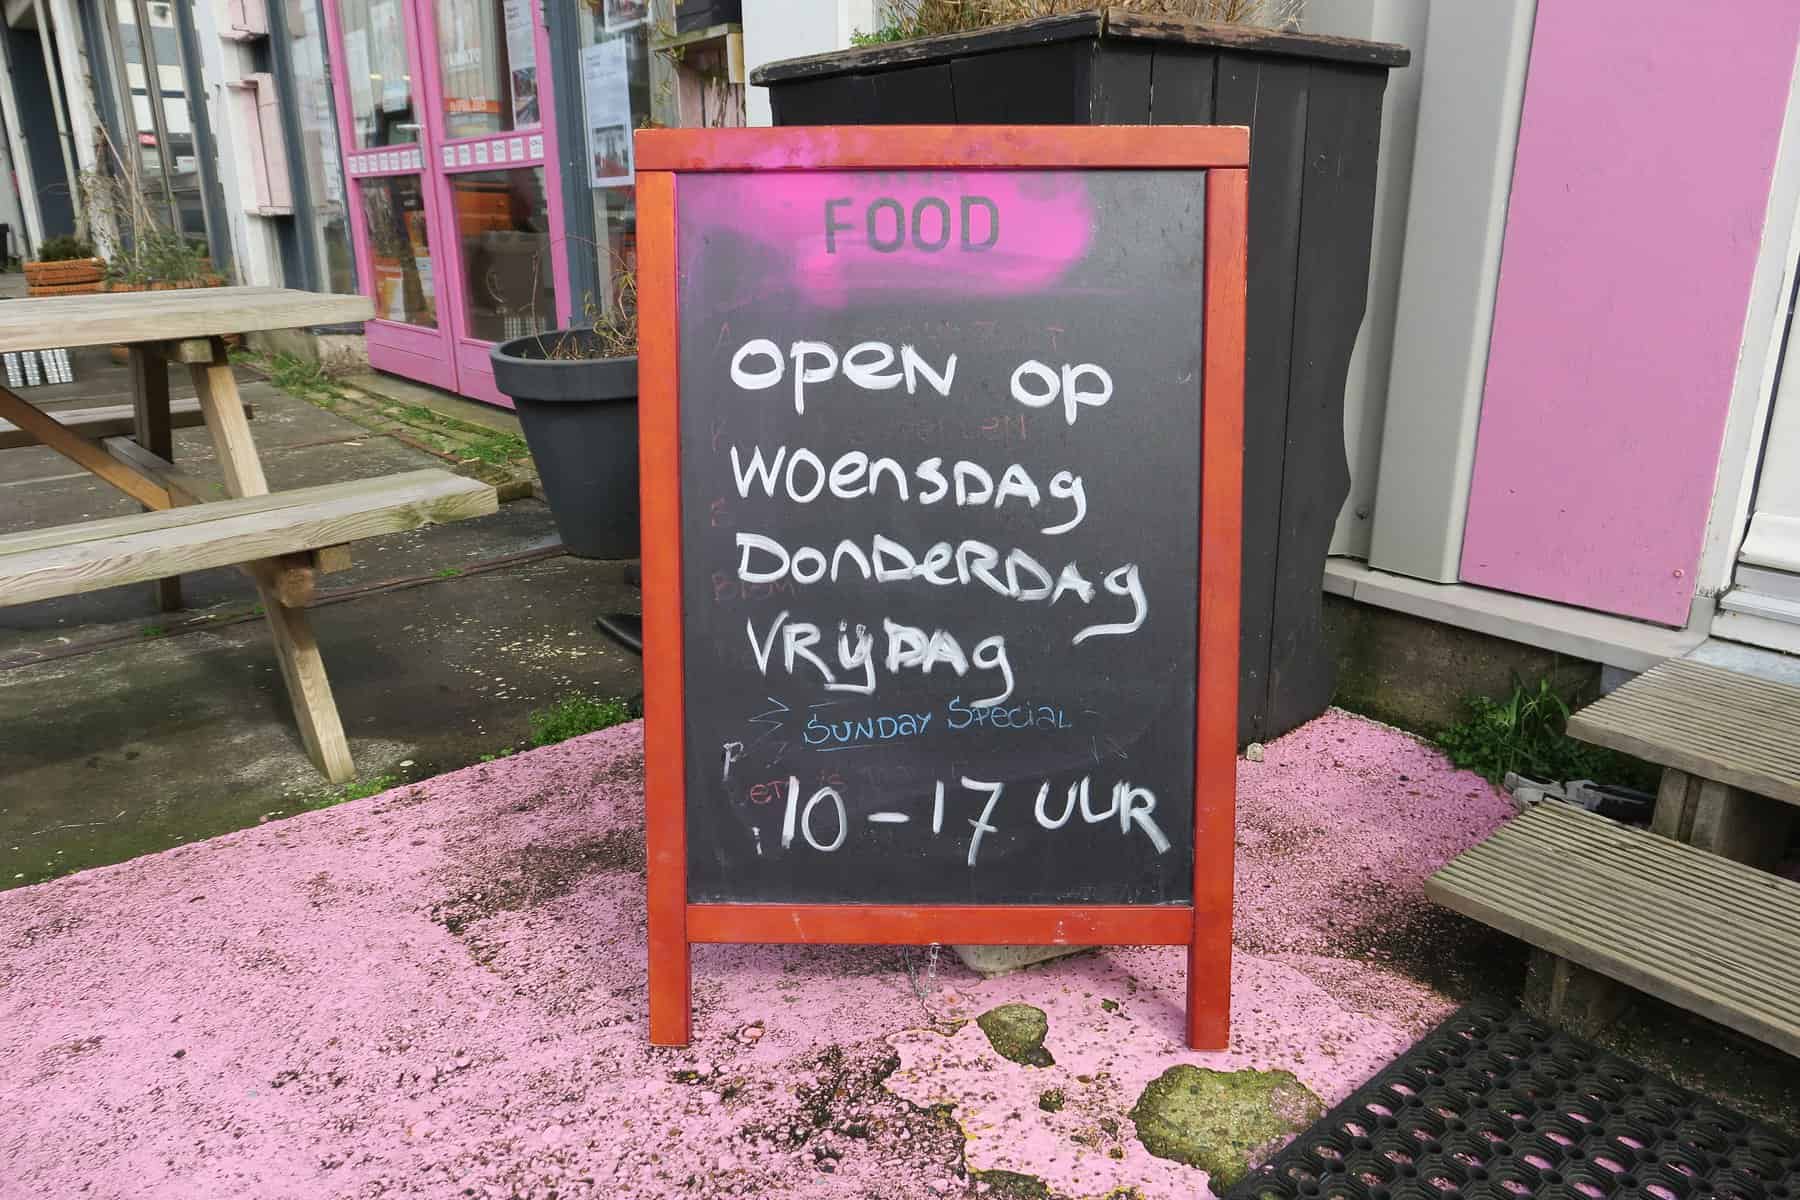 FOOD
OPEN OP
WOENSDAG
DONDERDAG
VRIJDAG
SUNDAY SPECIAL
10 - 17 UUR